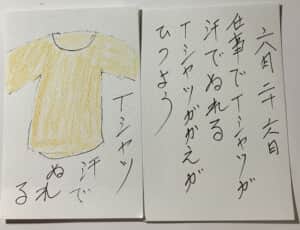 六月二十六日
仕事でTシャツが
汗でぬれる
Tシャツがかえが
ひつよう
Tシャツ
汗で
ぬれ
る